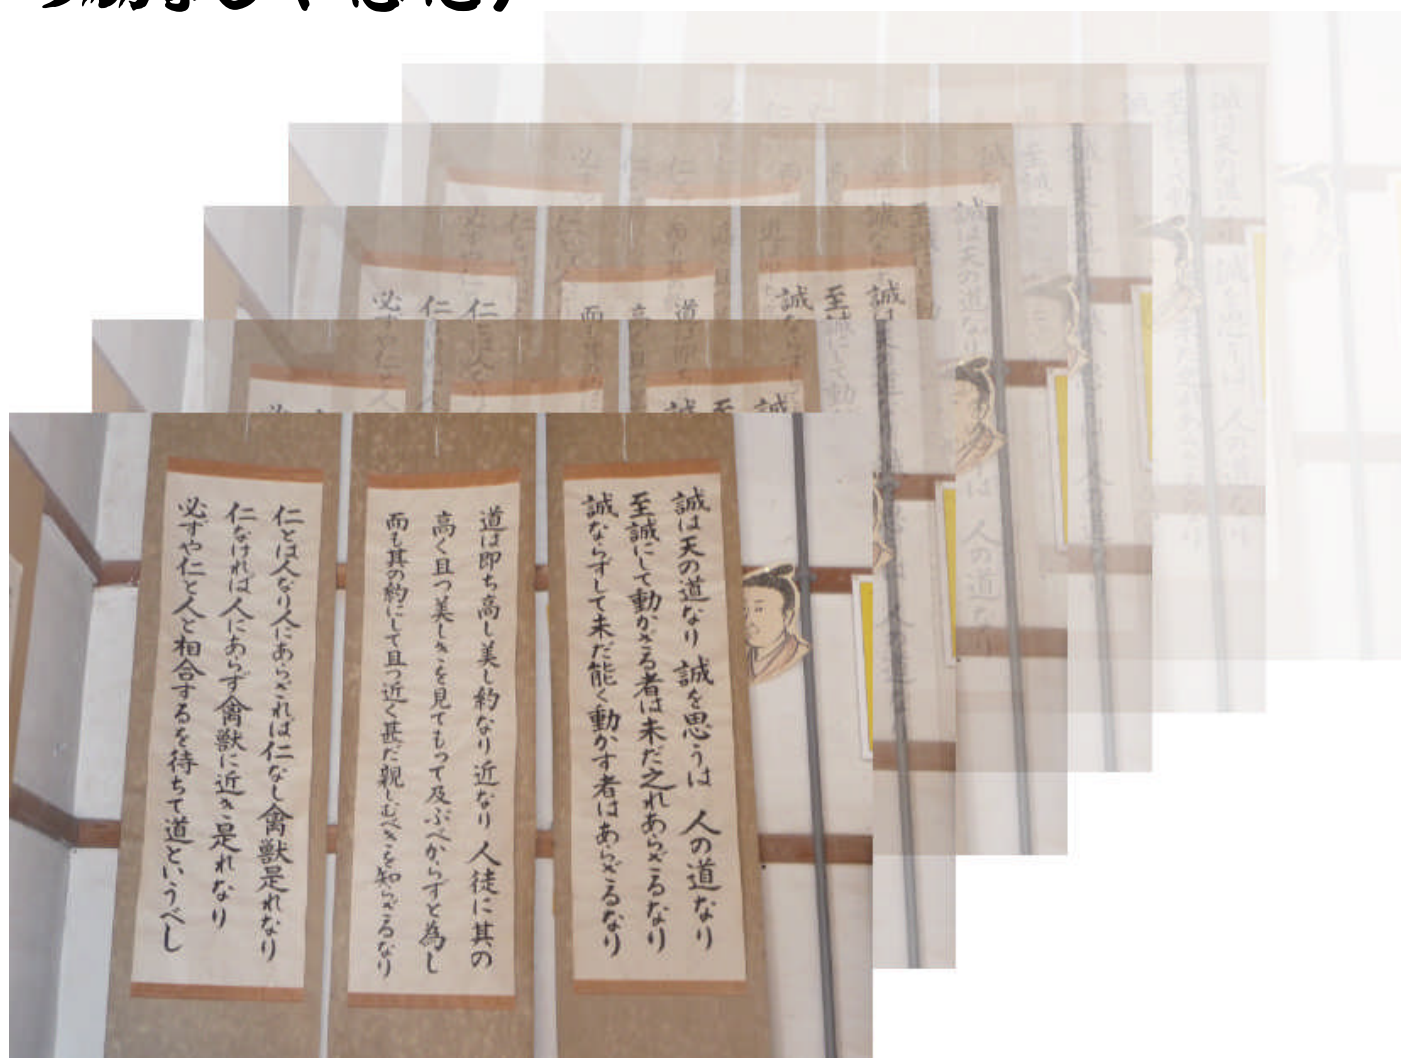 誠は天の道なり 誠を思うは 人の道なり
至誠にして動かざる者は未だ之れあらざるなり
誠ならずして未だ能く動かす者はあらざるなり
道は即ち高し美し約なり近なり 人徒に其の
高く且つ美しきを見てもって及ぶべからずと為し
而も其の約にして且つ近く甚だ親しむべきを知らざるなり
仁とは人なり人にあらざれば仁なし禽獣是れなり
仁なければ人にあらず禽獣に近き是れなり
必ずや仁と人と相合するを待ちて道というべし